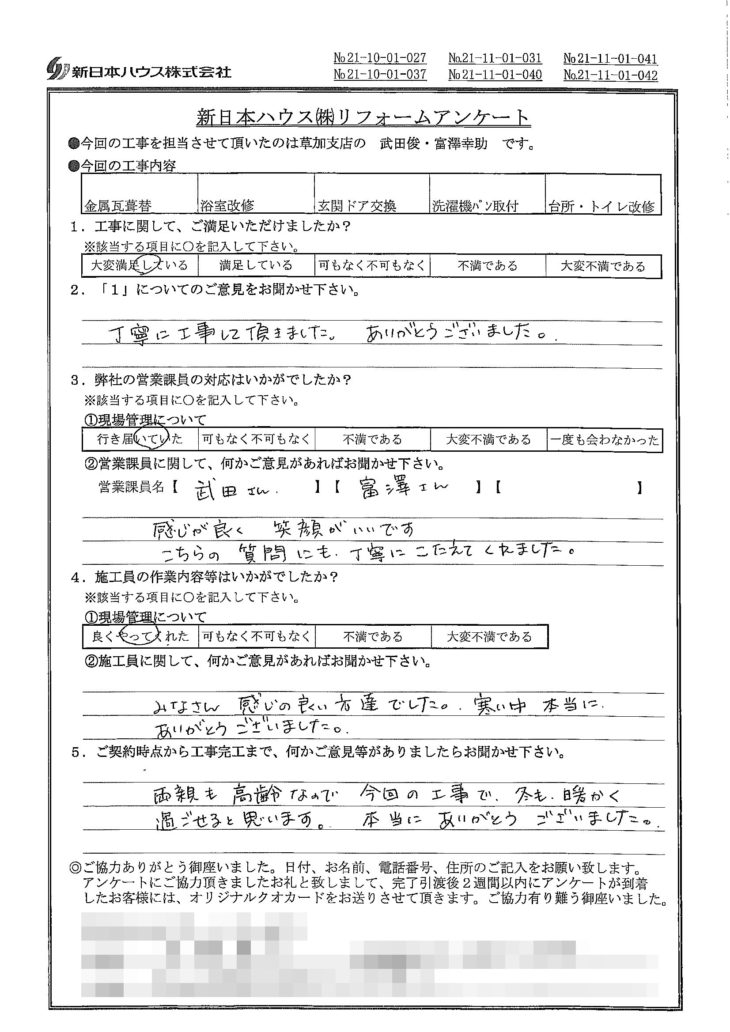 新日本ハウス株式会社
No.21-10-01-027 No.21-11-01-031 No.21-11-01-041
No.21-10-01-037 No.21-11-01-040 No.21-11-01-042
新日本ハウス㈱リフォームアンケート
●今回の工事を担当させて頂いたのは草加支店の 武田俊・富澤幸助 です。
●今回の工事内容
金属瓦葺替 浴室改修 玄関ドア交換 洗濯機パン取付 台所・トイレ改修
1．工事に関して、ご満足いただけましたか？
※該当する項目に○を記入して下さい。
大変満足している 満足している 可もなく不可もなく 不満である 大変不満である
2．「1」についてのご意見をお聞かせ下さい。
丁寧に工事して頂きました。ありがとうございました。
3．弊社の営業課員の対応はいかがでしたか？
※該当する項目に○を記入して下さい。
①現場管理について
行き届いていた 可もなく不可もなく 不満である 大変不満である 一度も会わなかった
②営業課員に関して、何かご意見があればお聞かせ下さい。
営業課員名【 武田さん 】【 富澤さん 】【 】
感じが良く 笑顔がいいです
こちらの質問にも、丁寧にこたえてくれました。
4．施工員の作業内容等はいかがでしたか？
※該当する項目に○を記入して下さい。
①現場管理について
良くやってくれた 可もなく不可もなく 不満である 大変不満である
②施工員に関して、何かご意見があればお聞かせ下さい。
みなさん 感じの良い方達でした。寒い中 本当に
ありがとうございました。
5．ご契約時点から工事完工まで、何かご意見等がありましたらお聞かせ下さい。
両親も高齢なので 今回の工事で、冬も、暖かく
過ごせると思います。 本当に ありがとう ございました。
◎ご協力ありがとう御座いました。日付、お名前、電話番号、住所のご記入をお願い致します。
アンケートにご協力頂きましたお礼と致しまして、完了引渡後2週間以内にアンケートが到着
したお客様には、オリジナルクオカードをお送りさせて頂きます。ご協力有り難う御座いました。